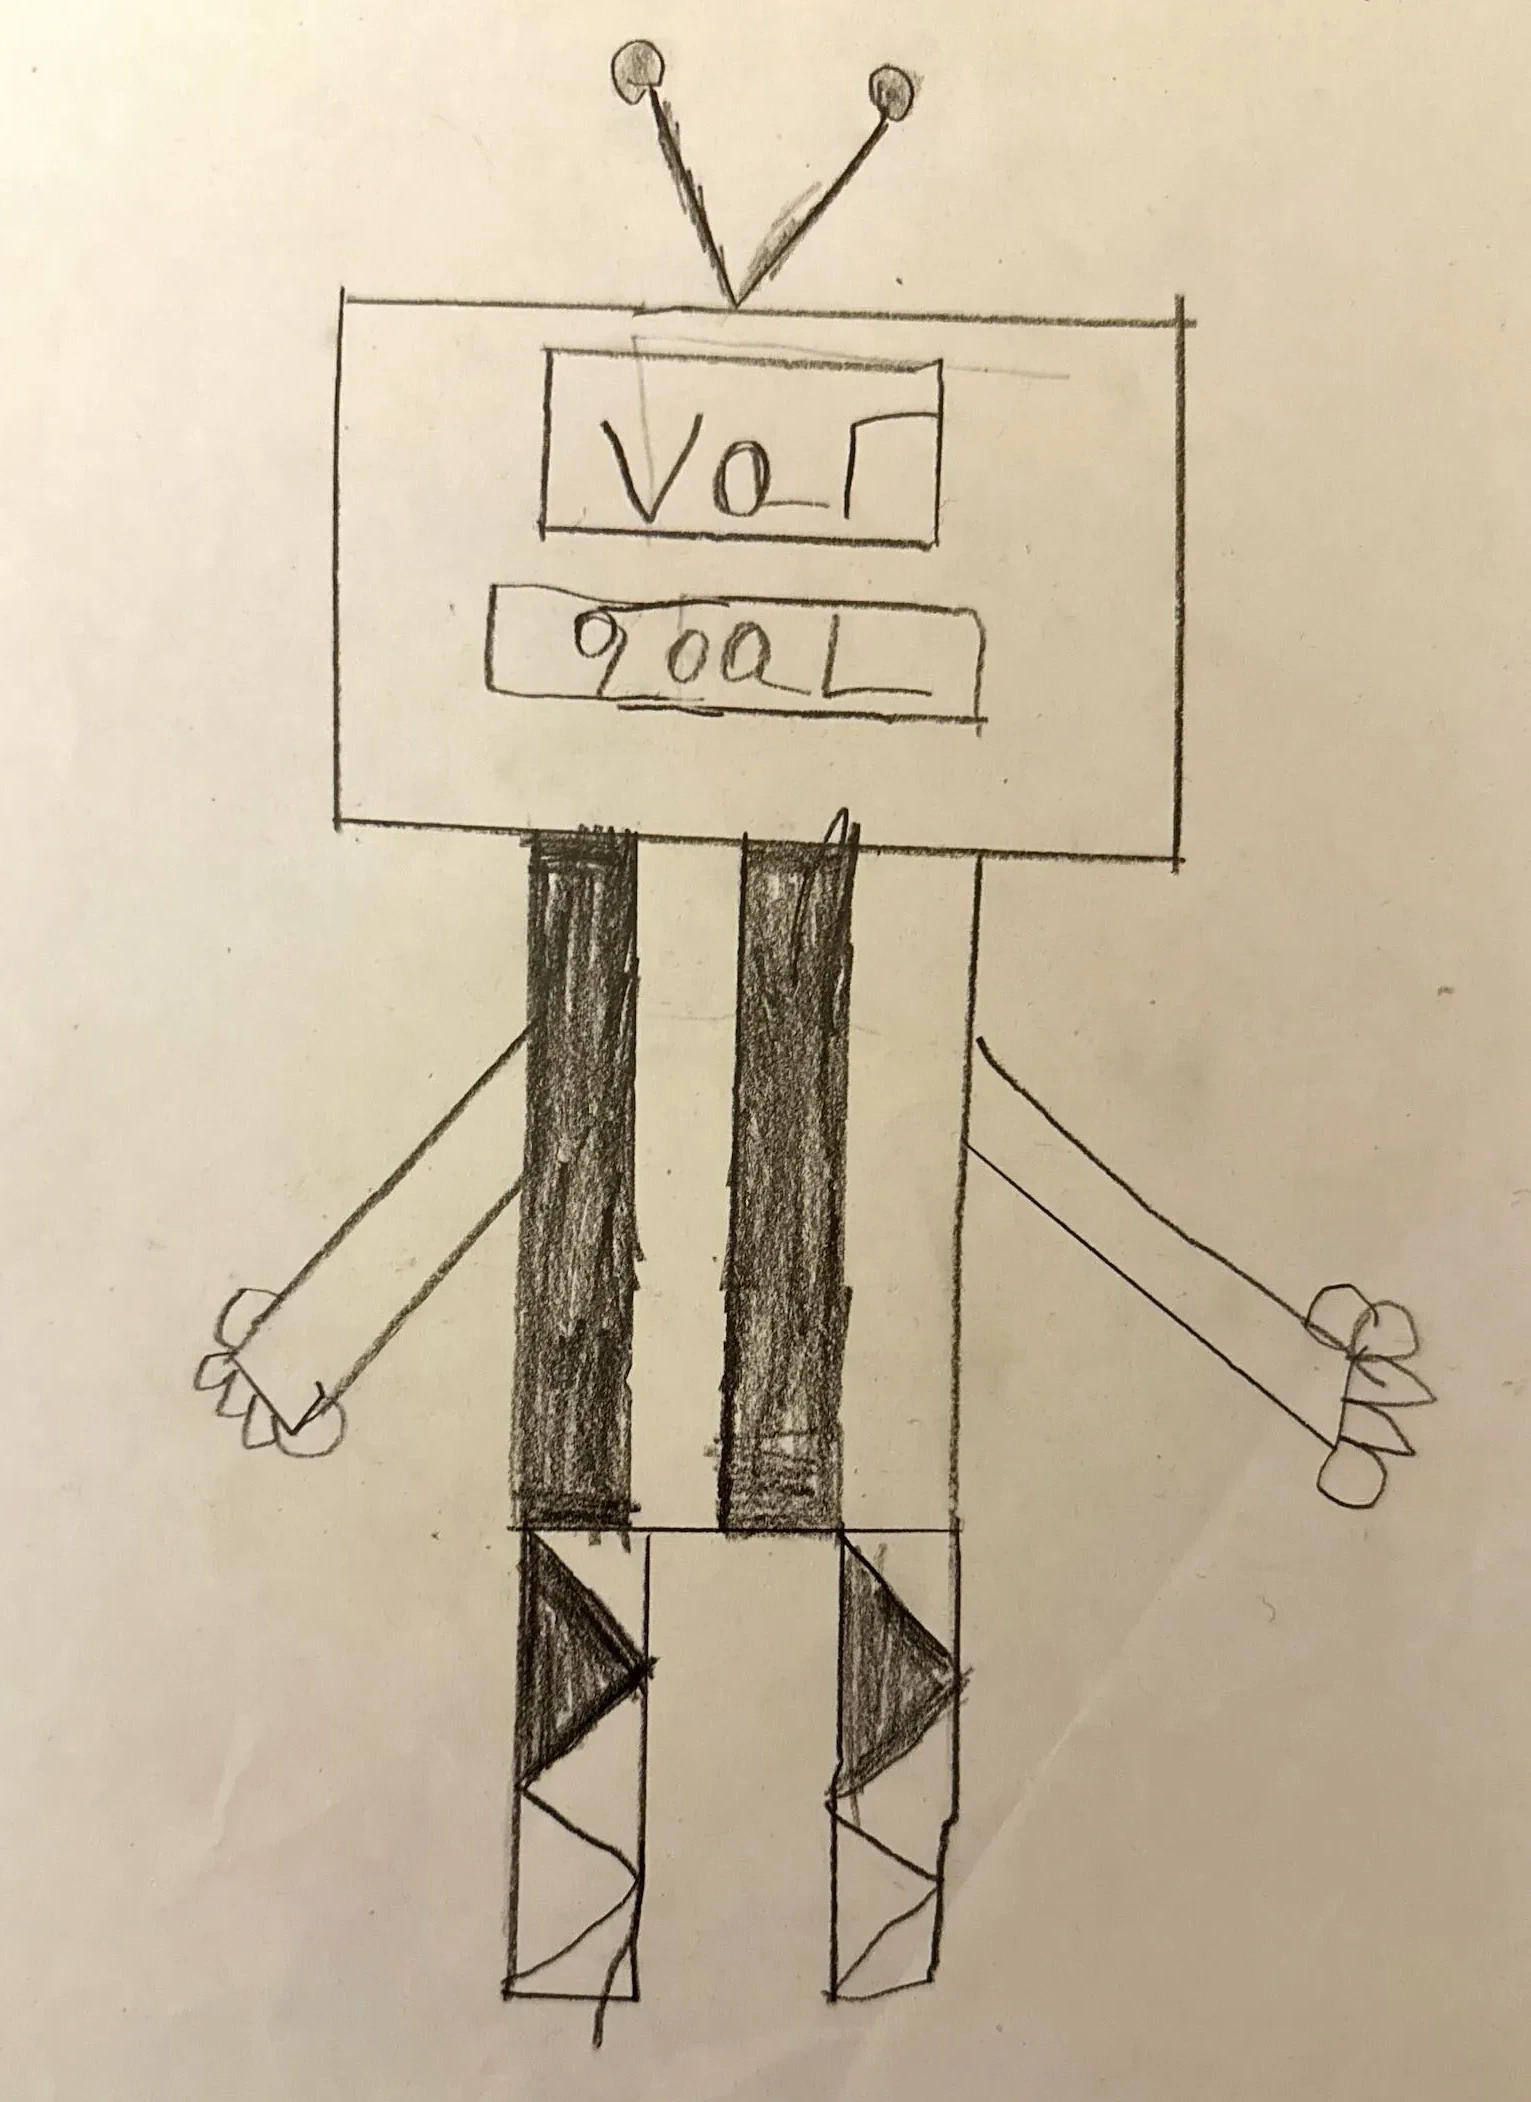 Var
goal